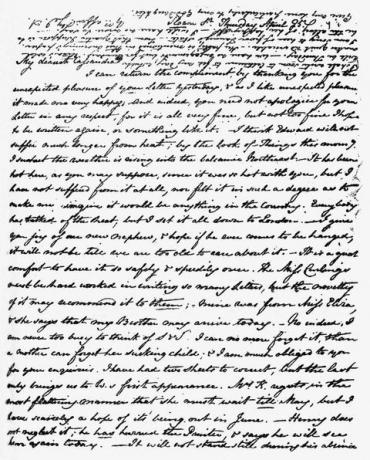 Sloane St Thursday April 25
My dearest Cassandra
I can return the compliment by thanking you for the
unexpected pleasure of your Letter yesterday, & as I like unexpected pleasure,
it made me very happy; And indeed, you need not apologise for your
Letter in any respect, for it is all very fine, but not too fine I hope
to be written again, or something like it. I think Edward will not
suffer much longer from heat; by the look of Things this morng
I suspect the weather is rising into the balsamic Northeast. It has been
hot here, as you may suppose, since it was so hot with you, but I
have not suffered from it at all, nor felt it in such a degree as to
make me imagine it would be anything in the Country. Everybody
has talked of the heat, but I set it all down to London. — I give
you joy of our new nephew, & hope if he ever comes to be hanged,
it will not be till we are too old to care about it. — It is a great
comfort to have it so safely & speedily over. The Miss Curlings
must be hard worked in writing so many Letters, but the novelty
of it may recommend it to them; — mine was from Miss Eliza,
& she says that my Brother may arrive today. — No indeed, I
am never too busy to think of S&S. I can no more forget it, than
a mother can forget her sucking child; & I am much obliged to you
for your enquiries. I have had two sheets to correct, but the last
only brings us to W.s first appearance. Mrs K. regrets in the
most flattering manner that she must wait till May, but I
have scarcely a hope of its being out in June. — Henry does
not neglect it; he has hurried the Printer, & says he will see
him again today. — It will not stand still during his absence